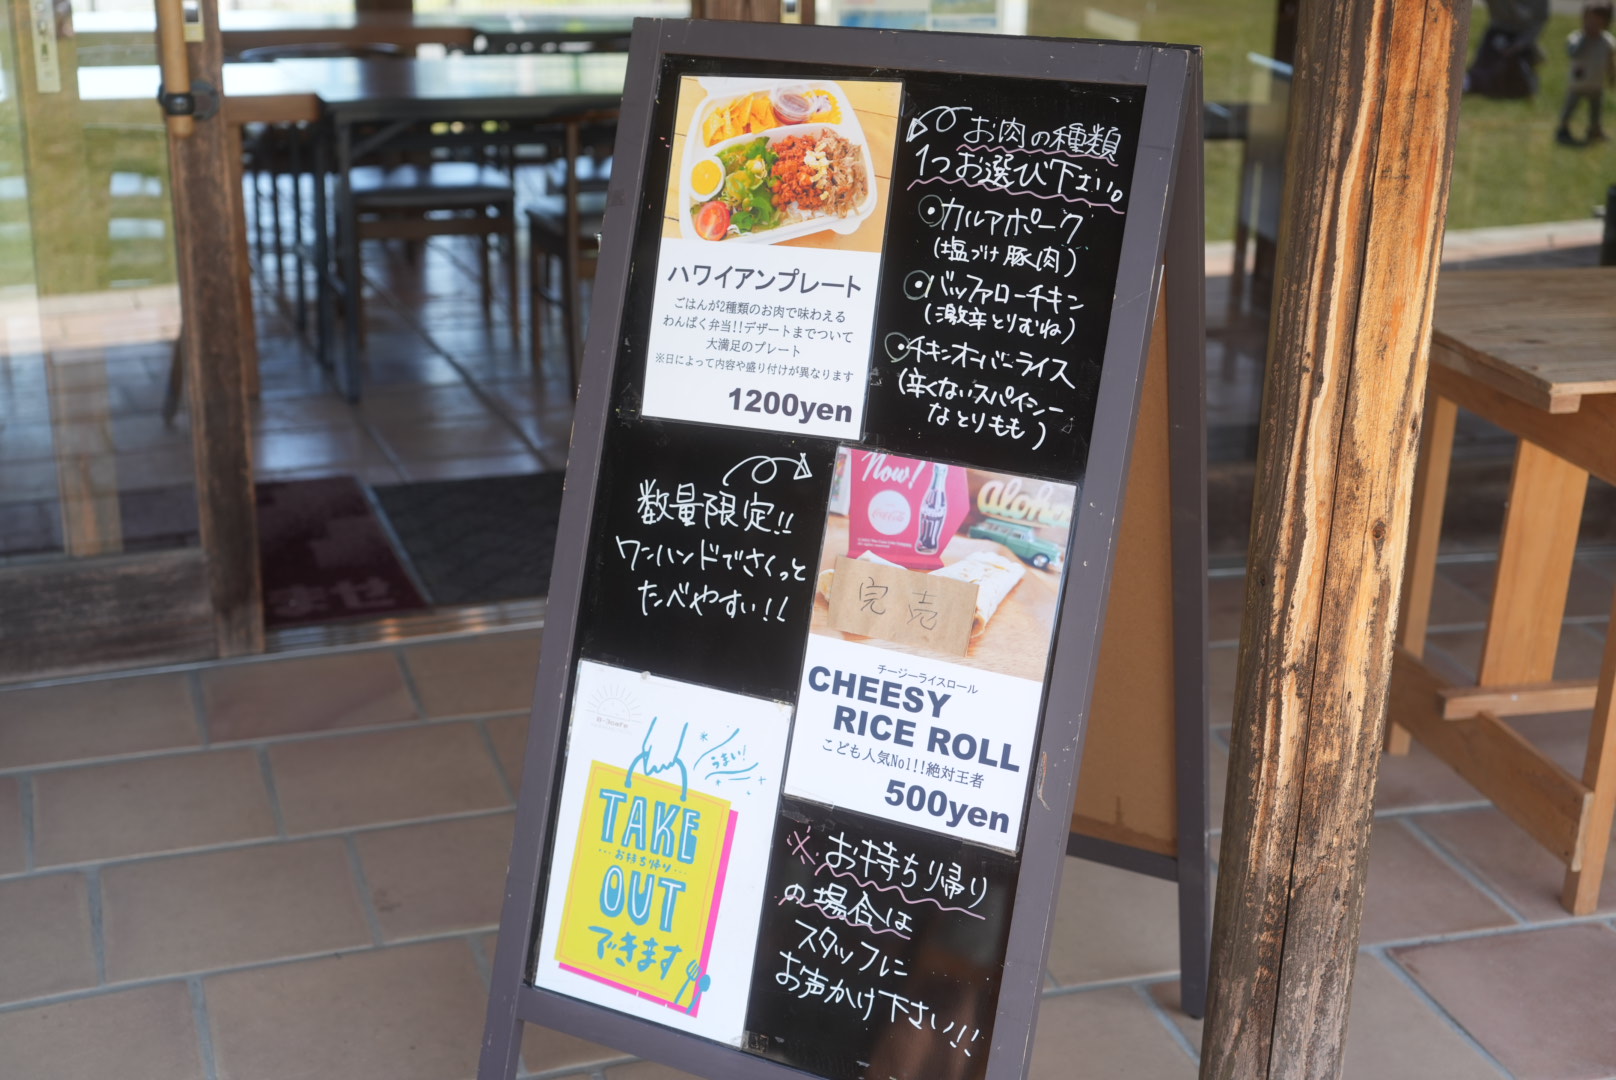 お肉の種類
1つお選び下さい。
・カルアポーク
(塩づけ豚肉)
・バッファローチキン
(激辛とりむね)
・チキンオーバーライス
(辛くないスパイシー
なとりもも)
ハワイアンプレート
ごはんが2種類のお肉で味わえる
わんぱく弁当!!デザートまでついて
大満足のプレート
※日によって内容や盛り付けが異なります
1200yen
数量限定!!
ワンハンドでさくっと
たべやすい!!
Now!
Coca-Cola
Aloha
完売
チージーライスロール
CHEESY
RICE ROLL
こども人気No1!!絶対王者
500yen
うまい!
TAKE
お持ち帰り
OUT
できます
※お持ち帰り
の場合は
スタッフに
お声かけ下さい!!
ませ